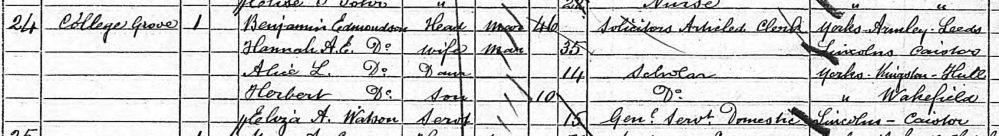 Nurse "
24 College Grove 1 Benjamin Edmondson Head Mar 46 Solicitors Articled Clerk Yorks - Armley - Leeds
Hannah A. E. Do wife mar 35 Lincolns Caistor
Alice L. Do Daur 14 Scholar Yorks - Kingston - Hull
Herbert Do son 10 Do " Wakefield
Eliza A. Watson Servt 15 Genl Servt Domestic Lincolns - Caistor
25 1